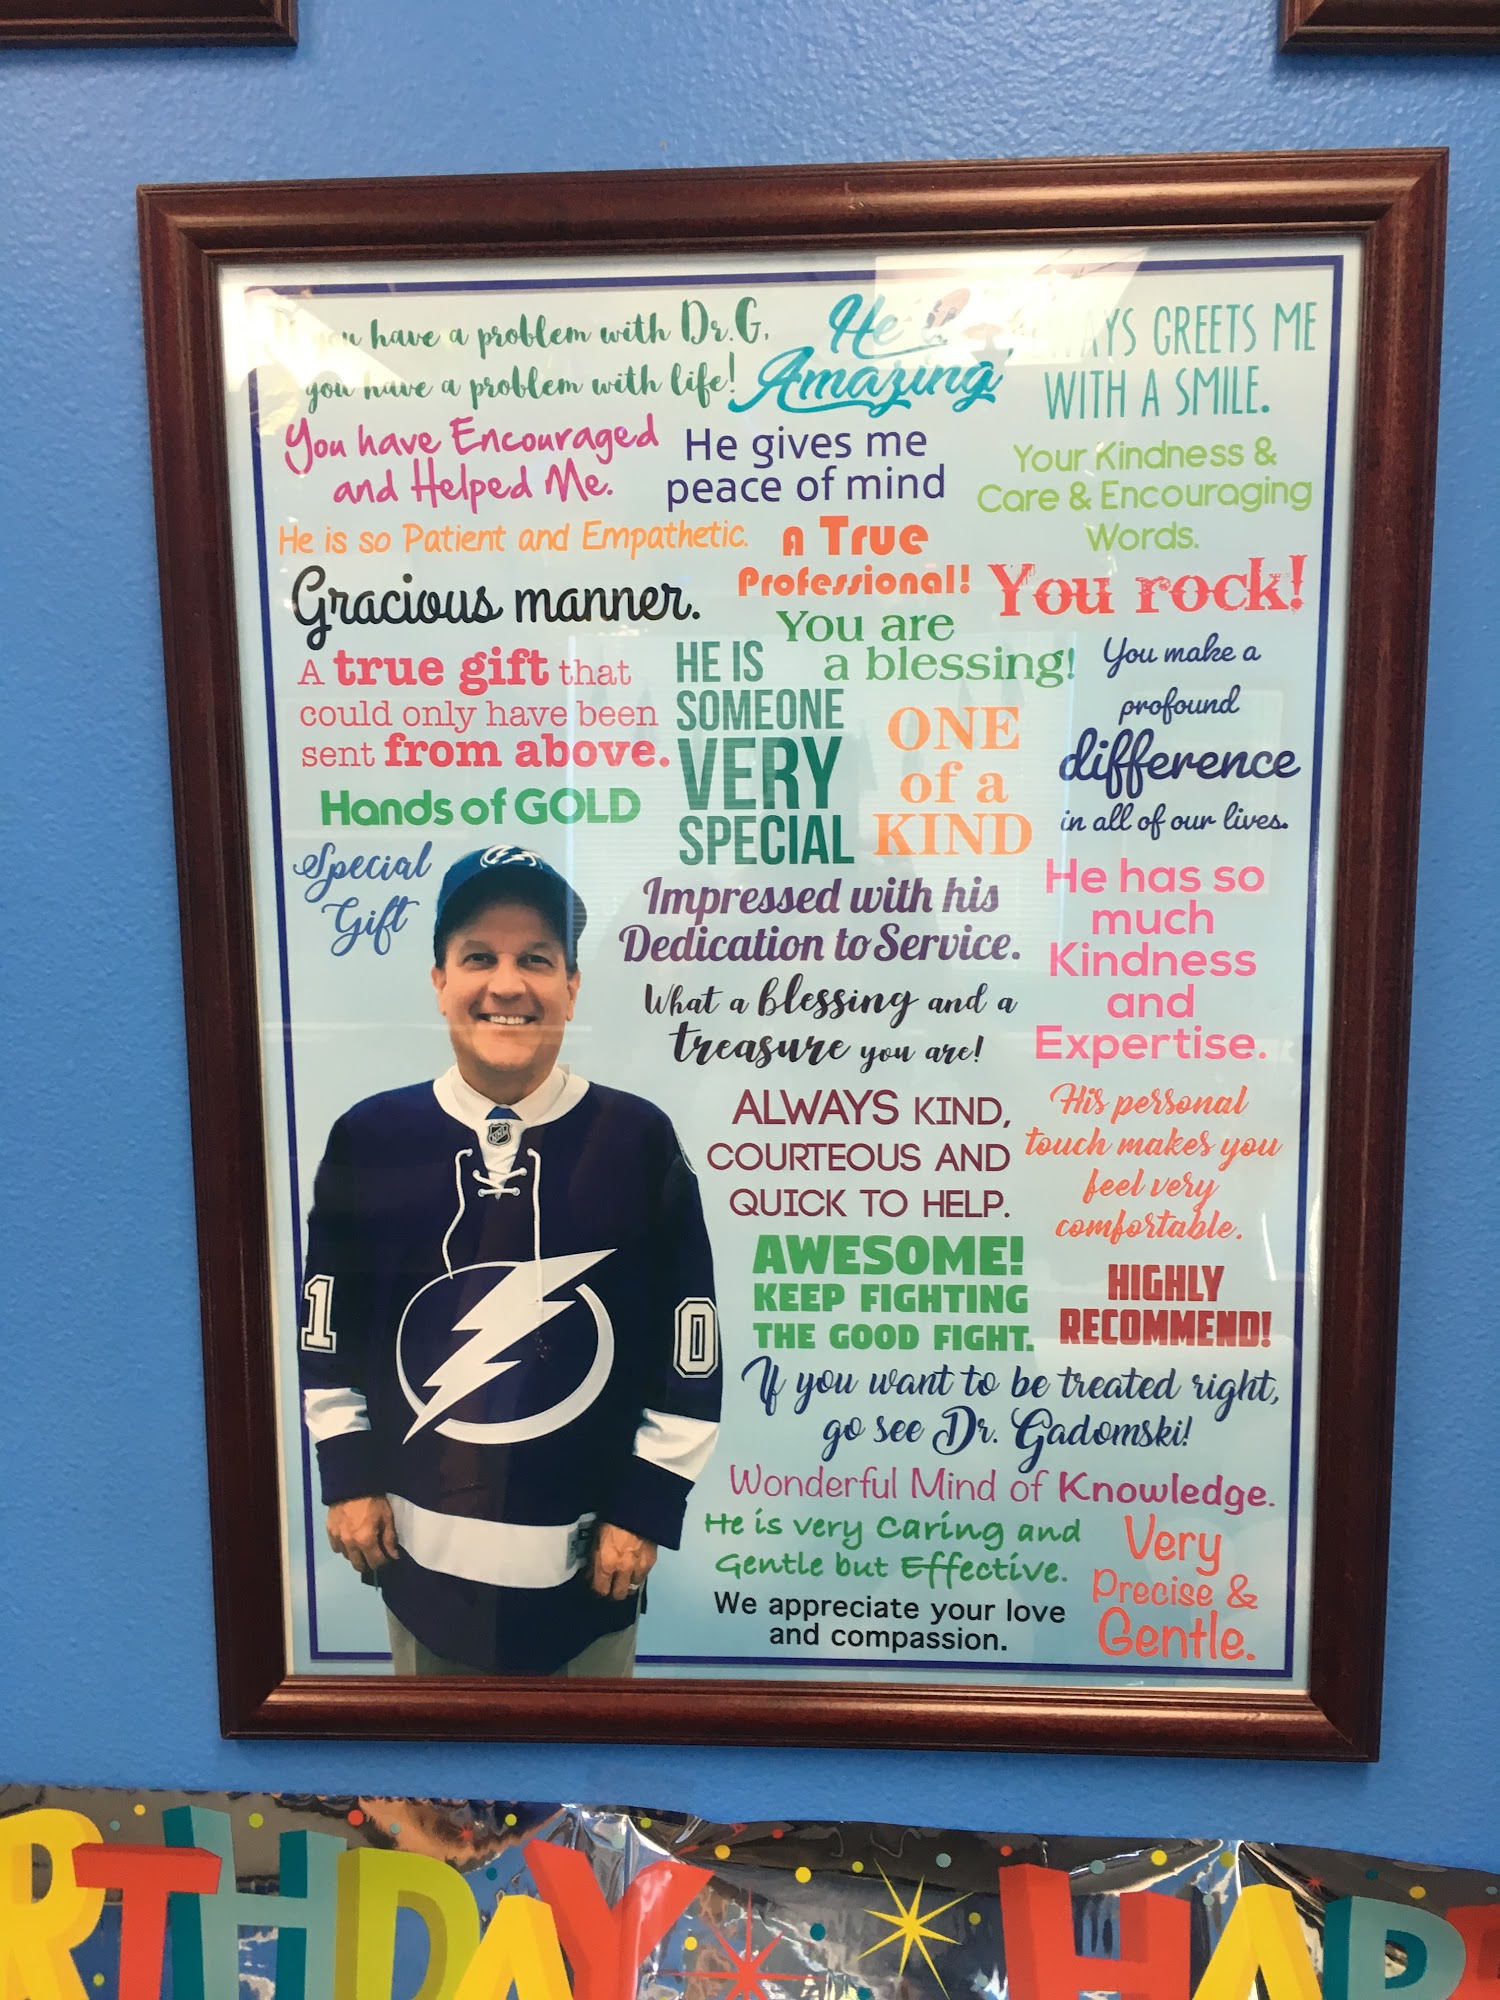 you have a problem with Dr.G,
you have a problem with life!
He
Amazing
GREETS ME
WITH A SMILE.
You have Encouraged
and Helped Me.
He gives me
peace of mind
Your Kindness &
Care & Encouraging
Words.
He is so Patient and Empathetic.
A True
Professional!
Gracious manner.
You rock!
You are
a blessing!
A true gift that
could only have been
sent from above.
HE IS
SOMEONE
VERY
SPECIAL
ONE
of a
KIND
You make a
profound
difference
in all of our lives.
Hands of GOLD
Special
Gift
Impressed with his
Dedication to Service.
He has so
much
Kindness
and
Expertise.
What a blessing and a
treasure you are!
ALWAYS KIND,
COURTEOUS AND
QUICK TO HELP.
His personal
touch makes you
feel very
comfortable.
AWESOME!
KEEP FIGHTING
THE GOOD FIGHT.
HIGHLY
RECOMMEND!
1 0
If you want to be treated right,
go see Dr. Gadomski!
Wonderful Mind of Knowledge.
He is very Caring and
Gentle but Effective.
Very
Precise &
Gentle.
We appreciate your love
and compassion.
RTHDAY HAPP